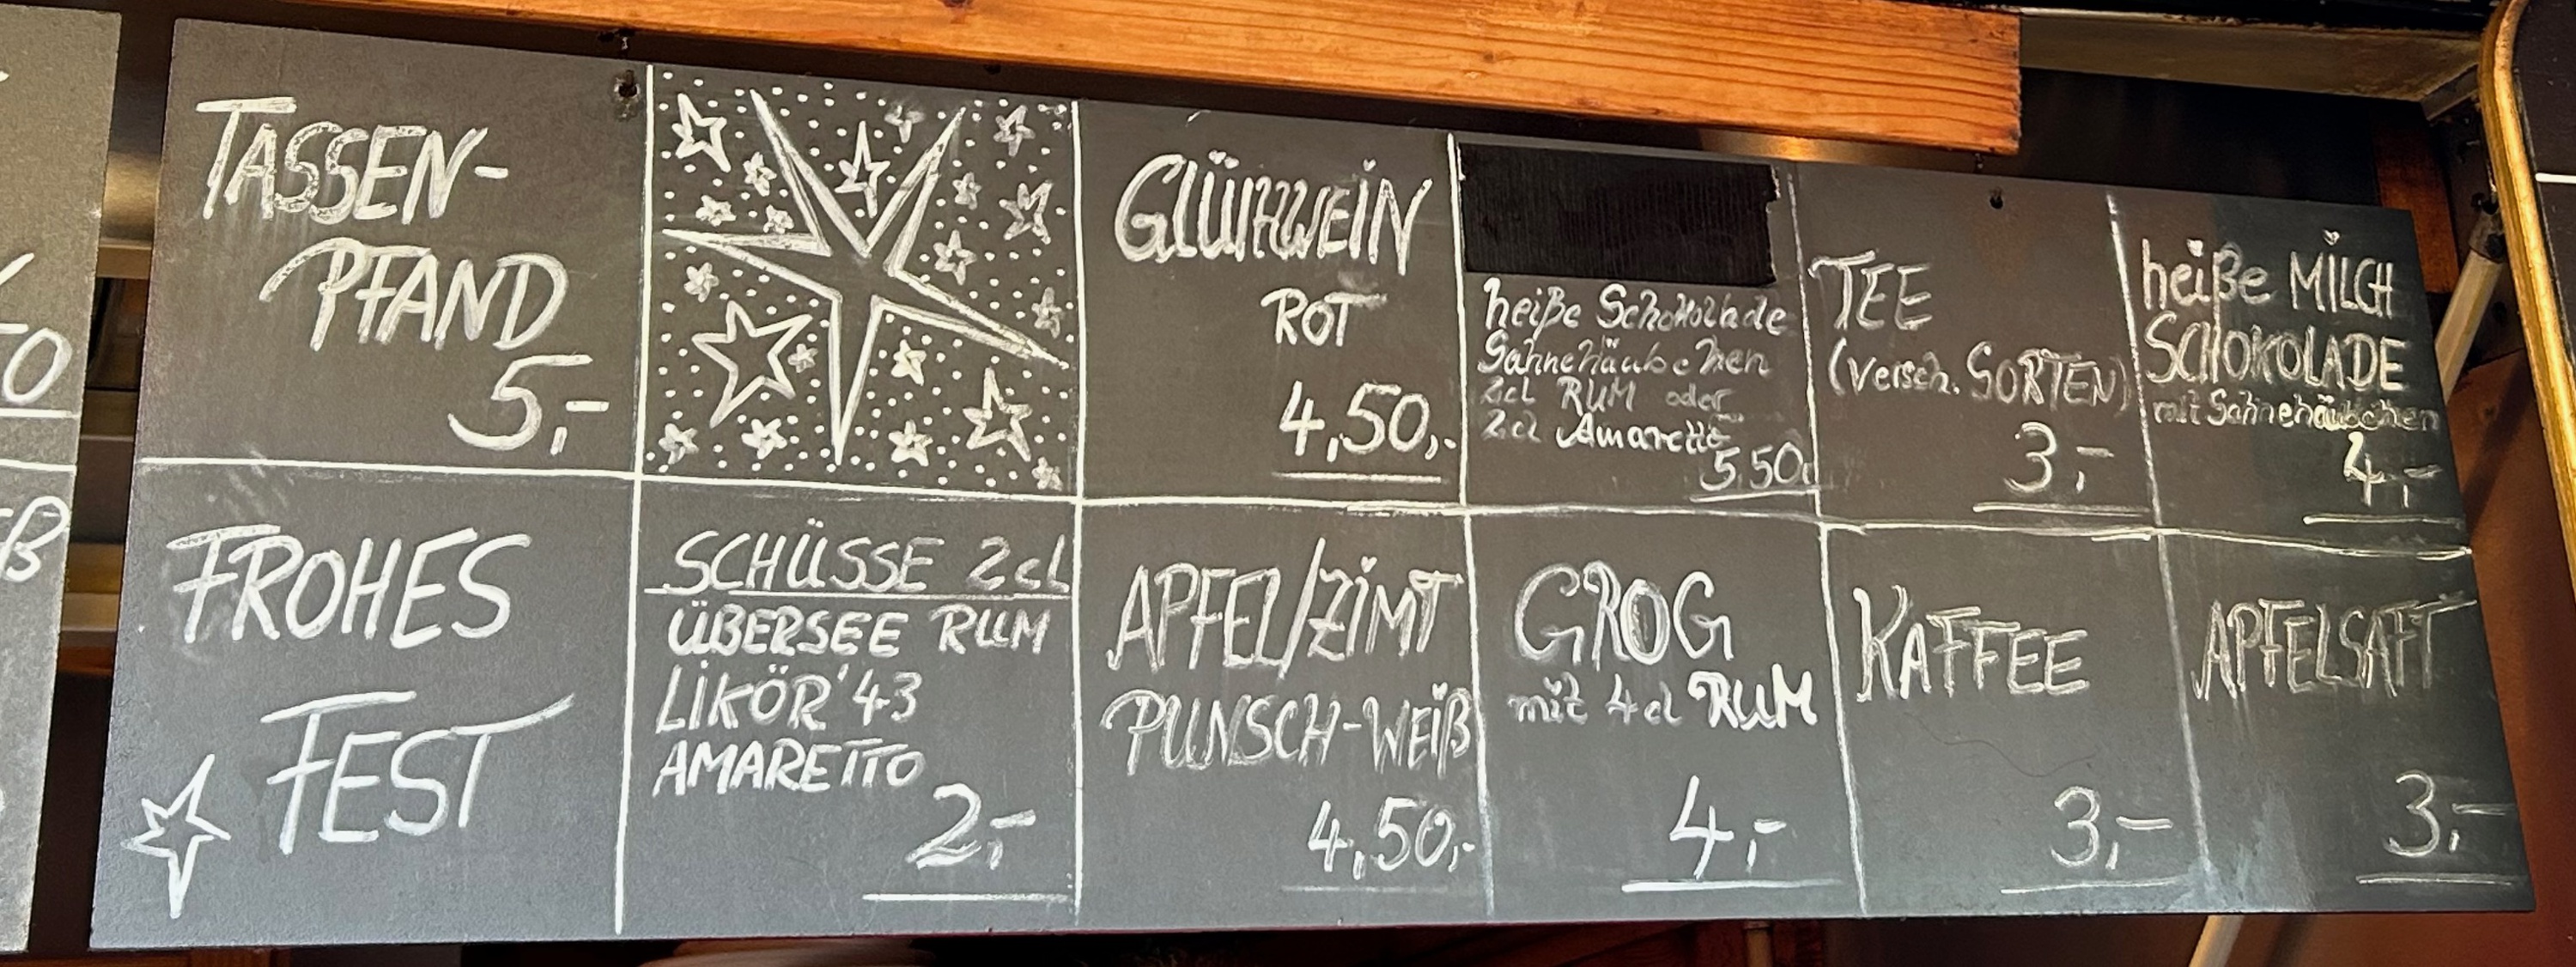 TASSEN-
PFAND
5,-
GLÜHWEIN
ROT
4,50,-
heiße Schokolade
Sahnehäubchen
2cl RUM oder
2cl Amaretto
5,50,-
TEE
(versch. SORTEN)
3,-
heiße MILCH
SCHOKOLADE
mit Sahnehäubchen
4,-
FROHES
FEST
SCHÜSSE 2cl
ÜBERSEE RUM
LIKÖR '43
AMARETTO
2,-
APFEL/ZIMT
PUNSCH-WEIß
4,50,-
GROG
mit 4cl RUM
4,-
KAFFEE
3,-
APFELSAFT
3,-